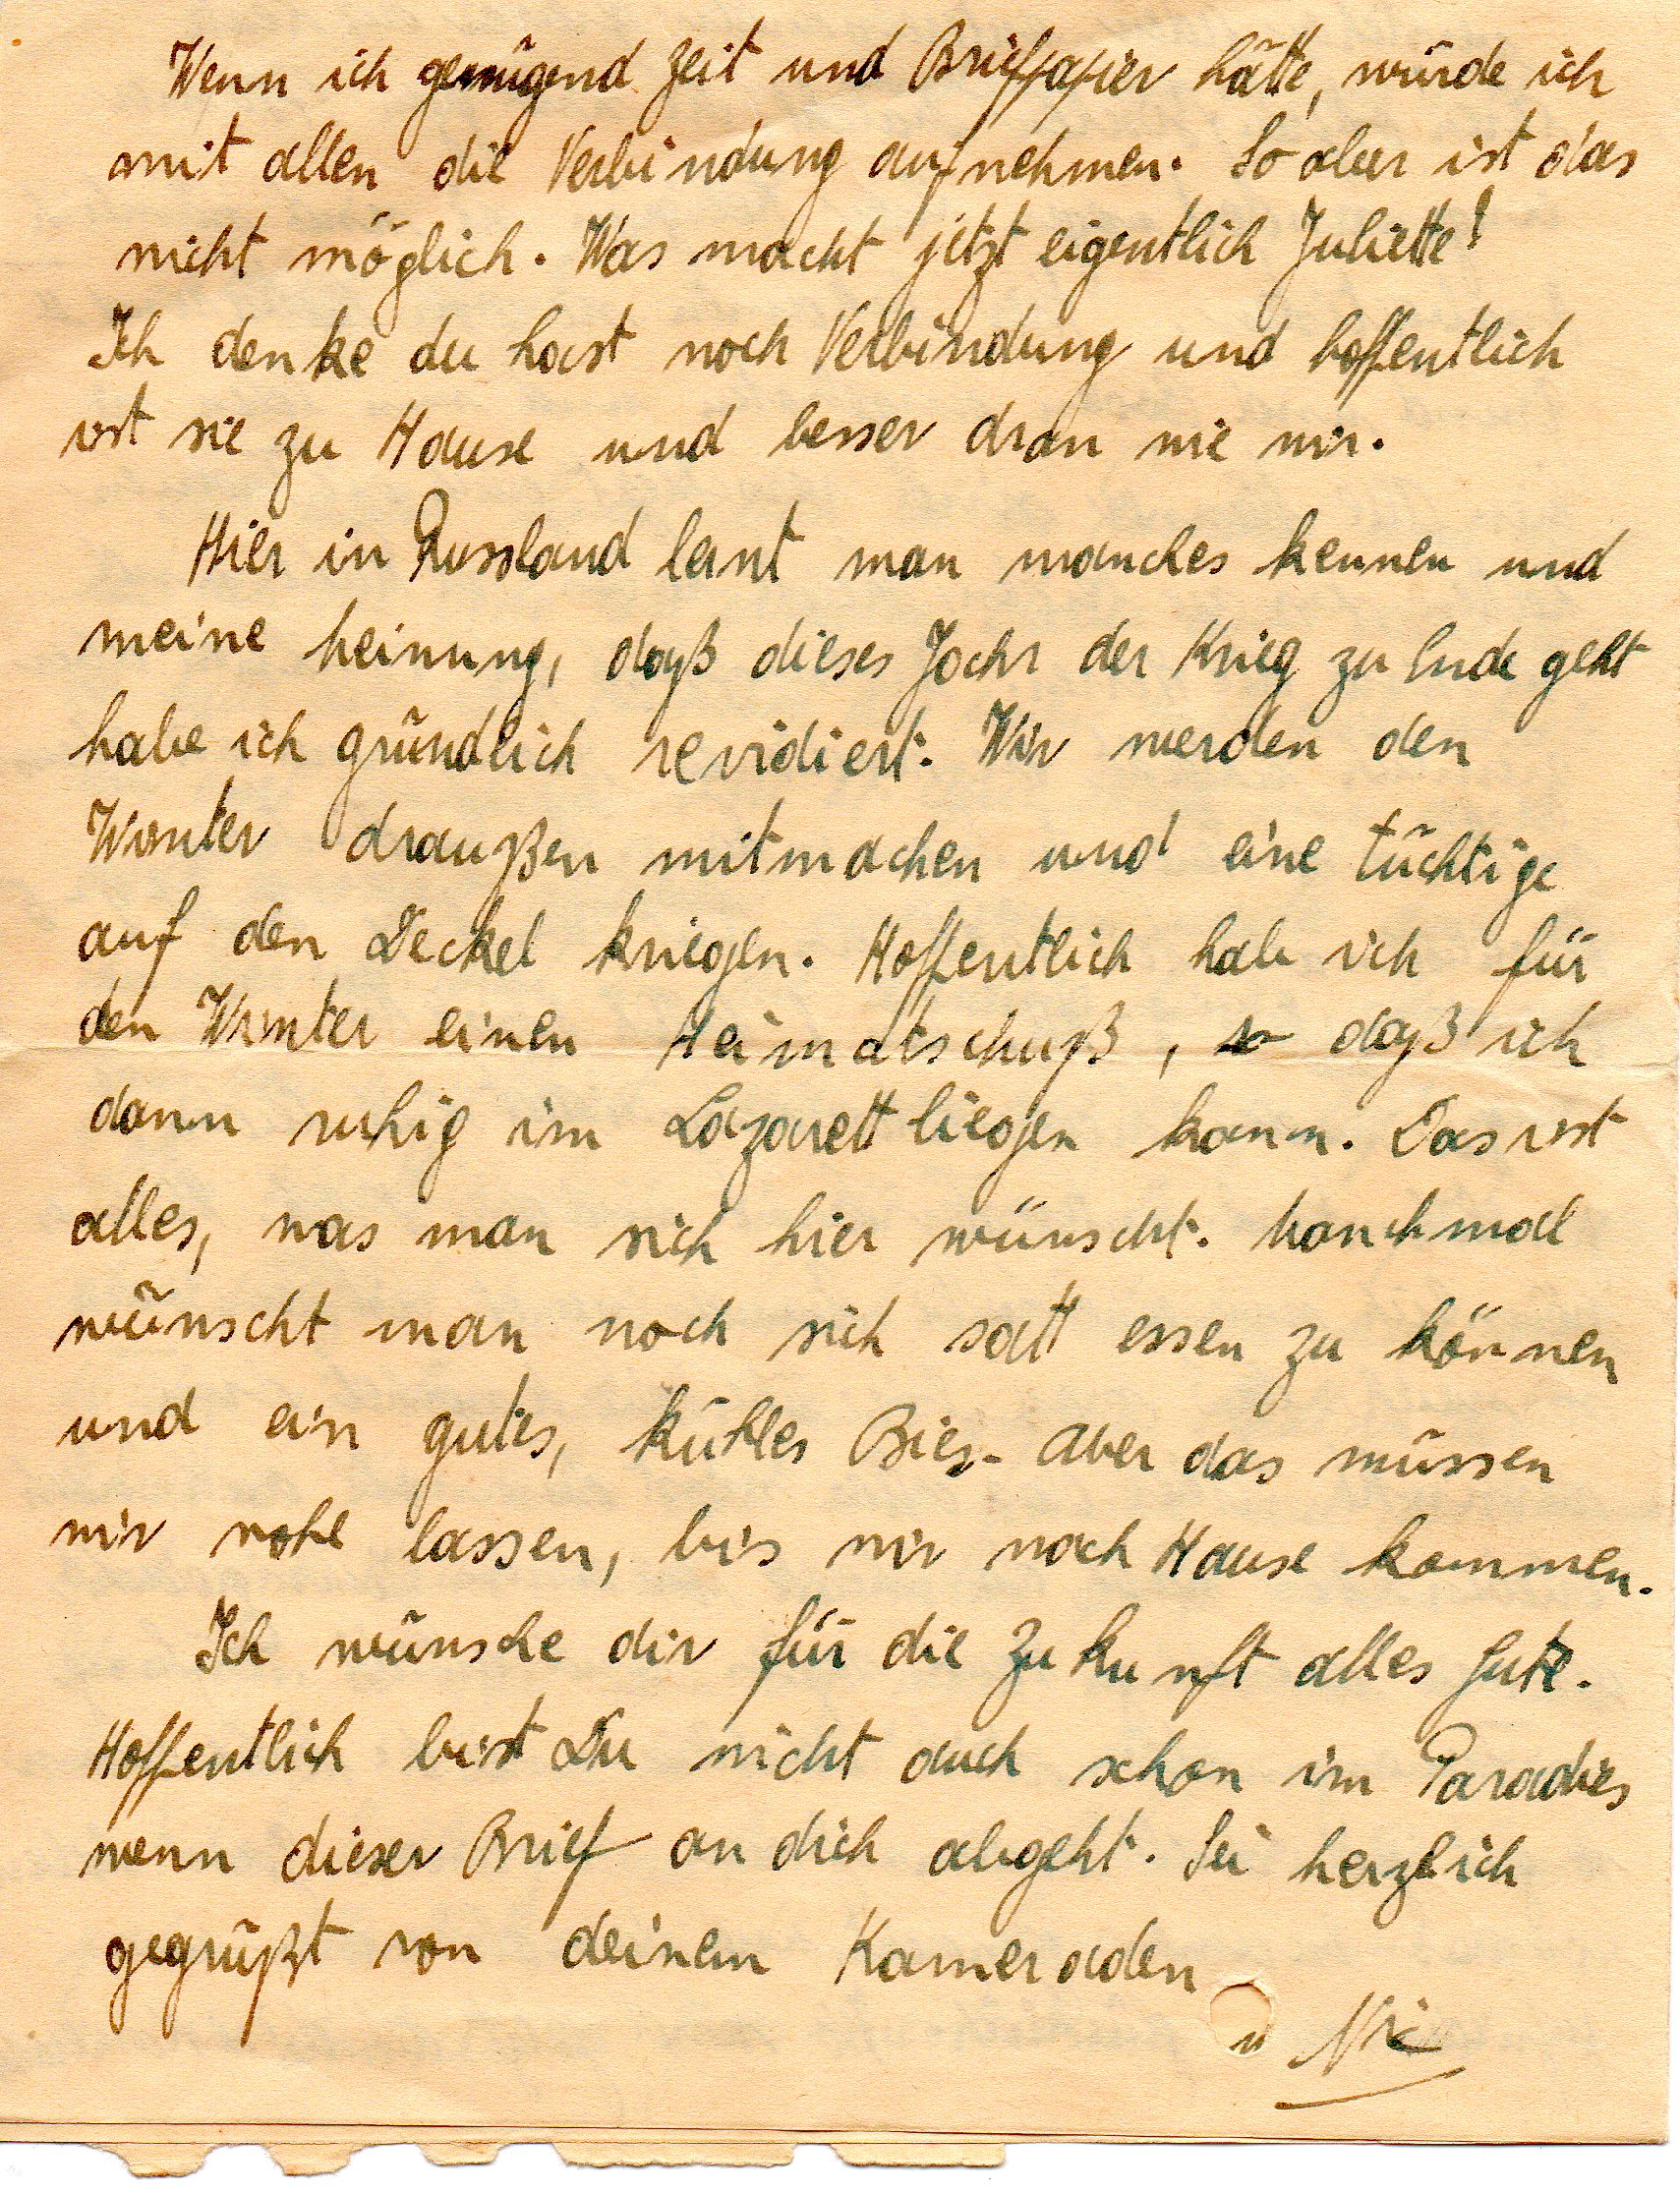 Wenn ich genügend Zeit und Briefpapier hätte, würde ich
mit allen die Verbindung aufnehmen. So aber ist das
nicht möglich. Was macht jetzt eigentlich Juliette?
Ich denke du hast noch Verbindung und hoffentlich
ist sie zu Hause und besser dran wie wir.
Hier in Russland lernt man manches kennen und
meine Meinung, daß dieses Jahr der Krieg zu Ende geht
habe ich gründlich revidiert. Wir werden den
Winter draußen mitmachen und eine tüchtige
auf den Deckel kriegen. Hoffentlich hab ich für
den Winter einen Heimatschuß, so daß ich
dann ruhig im Lazarett liegen kann. Das ist
alles, was man sich hier wünscht. Manchmal
wünscht man noch sich satt essen zu können
und ein gutes, kühles Bier. Aber das müssen
wir wohl lassen, bis wir nach Hause kommen.
Ich wünsche dir für die Zukunft alles Gute.
Hoffentlich bist Du nicht auch schon im Paradies
wenn dieser Brief an dich abgeht. Sei herzlich
gegrüßt von deinem Kameraden
Nic